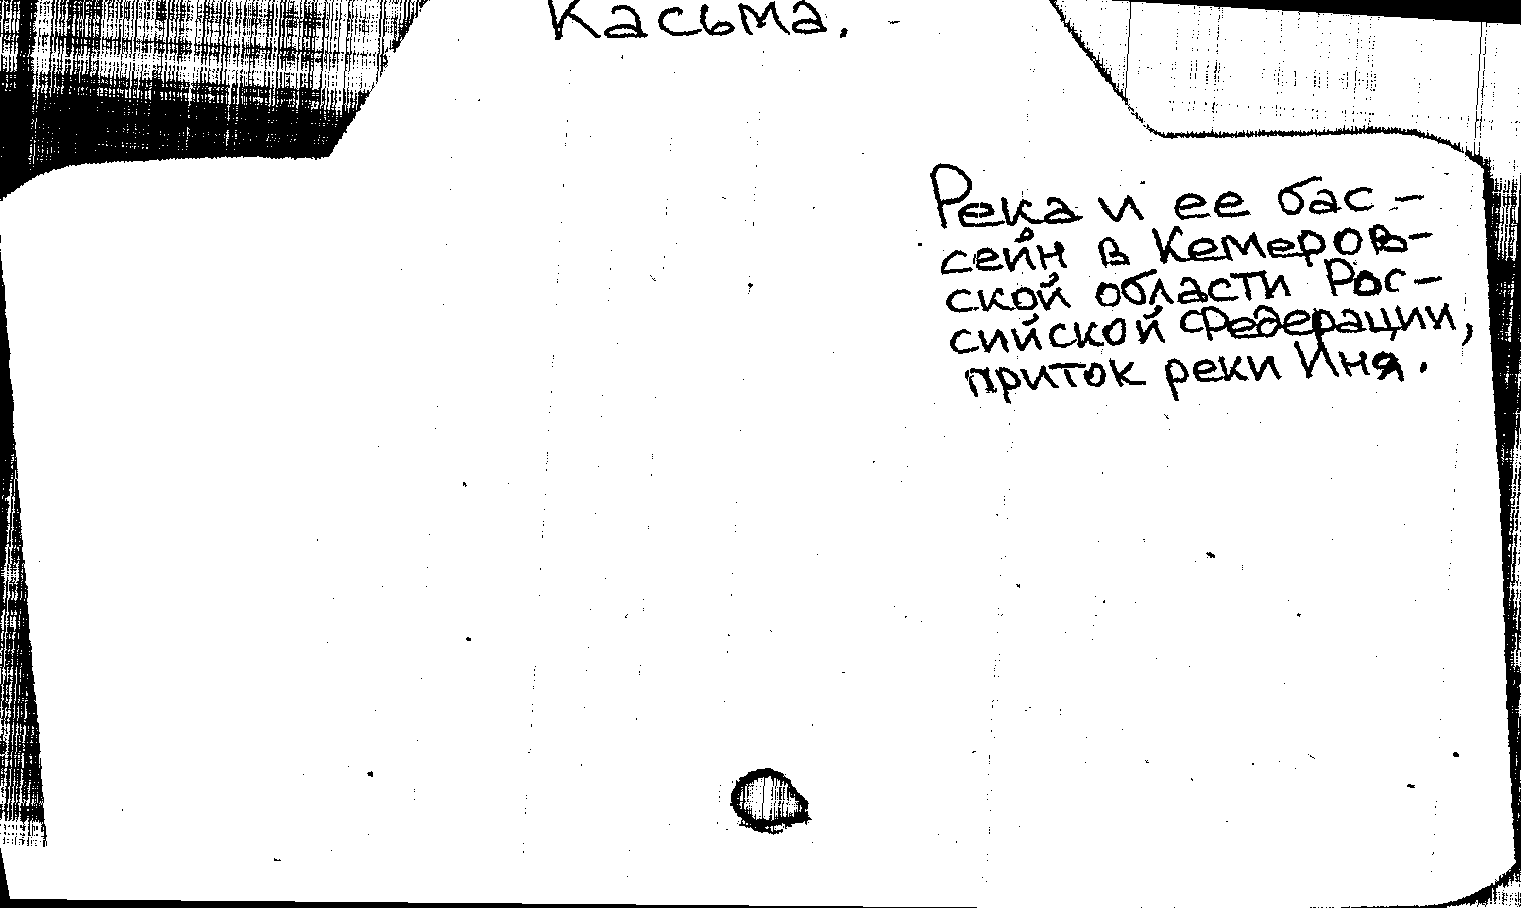 Касьма.
Река и ее бас-
сейн в Кемеров-
ской области Рос-
сийской Федерации,
приток реки Иня.